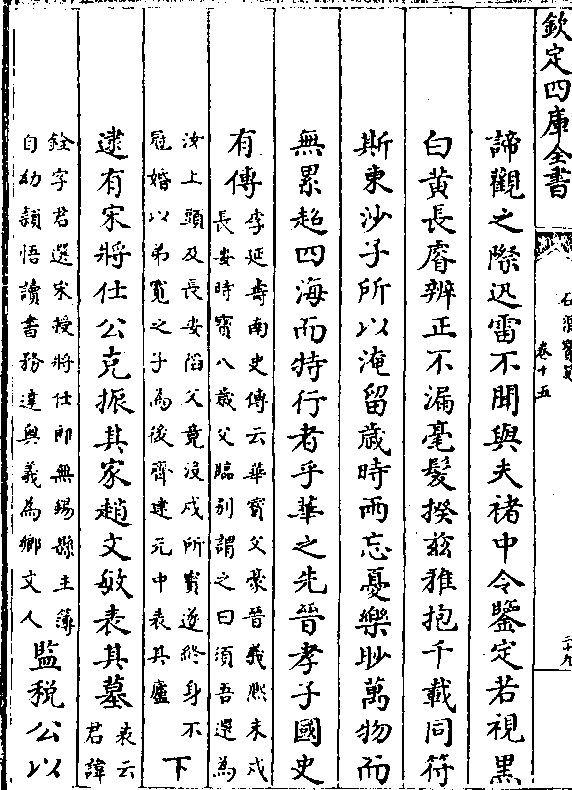 欽定四庫全書
卷十五
諦觀之際迅雷不聞與夫褚中令鑒定若視黒
白黄長睿辨正不漏毫髮揆兹雅抱千載同符
斯東沙子所以淹留歲時而忘憂樂眇萬物而
無累超四海而特行者乎華之先晉孝子國史
有傳李延壽南史傳云華寳父豪晉義熙末戍
長安時寳八歲父臨别謂之曰須吾還為
汝上頭及長安陷父竟没戍所寳遂終身不
冠婚以弟寛之子為後齊建元中表其廬
下
逮有宋將仕公克振其家趙文敏表其墓表云
君諱
銓字君選宋授將仕郎無錫縣主簿
自幼穎悟讀書務達奥義為鄉文人
監税公以